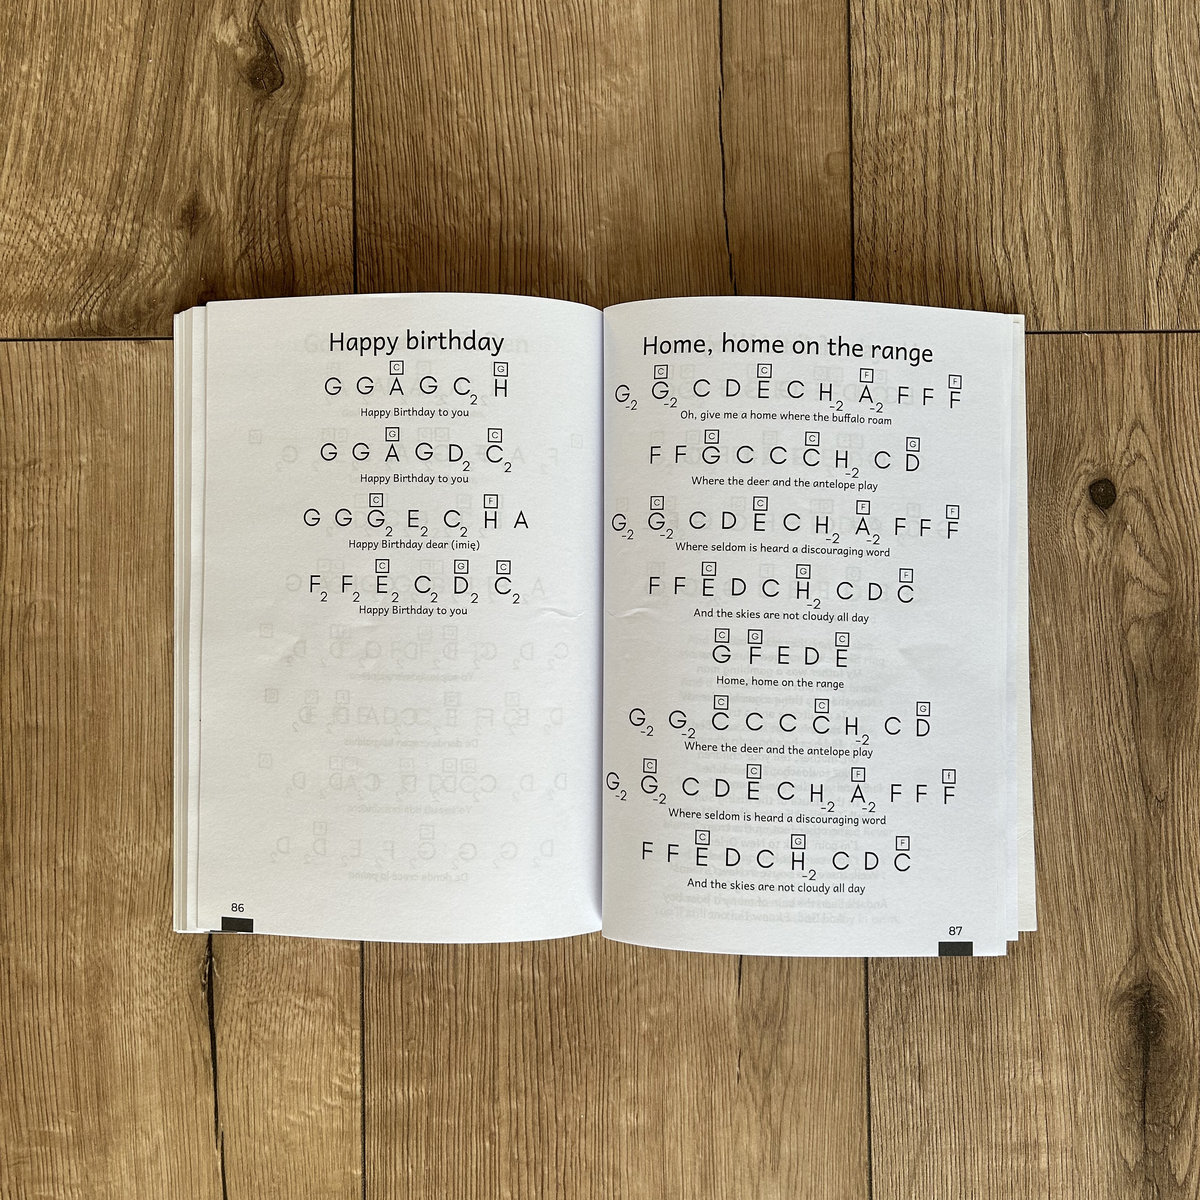 Happy birthday
C G
G G A G C2 H
Happy Birthday to you
G C
G G A G D2 C2
Happy Birthday to you
C F
G G G2 E2 C2 H A
Happy Birthday dear (imię)
C G C
F2 F2 E2 C2 D2 C2
Happy Birthday to you
86
Home, home on the range
C C F F
G-2 G-2 C D E C H-2 A-2 F F F
Oh, give me a home where the buffalo roam
C C G
F F G C C C H-2 C D
Where the deer and the antelope play
C C F F
G-2 G-2 C D E C H-2 A-2 F F F
Where seldom is heard a discouraging word
C G F
F F E D C H-2 C D C
And the skies are not cloudy all day
C G C
G F E D E
Home, home on the range
C C G
G-2 G-2 C C C C H-2 C D
Where the deer and the antelope play
C C F f
G-2 G-2 C D E C H-2 A-2 F F F
Where seldom is heard a discouraging word
C G F
F F E D C H-2 C D C
And the skies are not cloudy all day
87